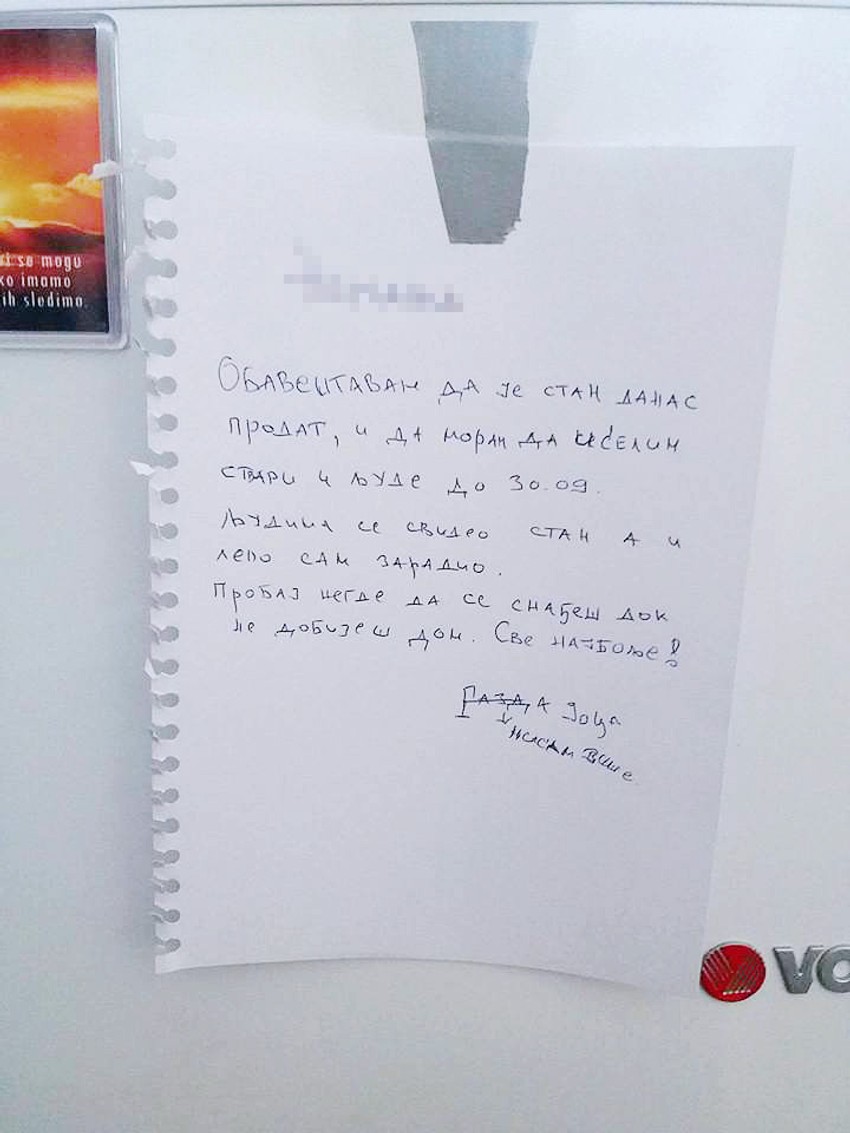 si se mogu
ko imamo
ih sledimo.
Обавештавам да је стан данас
продат, и да морам да иселим
ствари и људе до 30.09.
Људима се свидео стан а и
лепо сам зарадио.
Пробај негде да се снађеш док
не добијеш дом. Све најбоље!
Газда Јоца
нисам више
VO